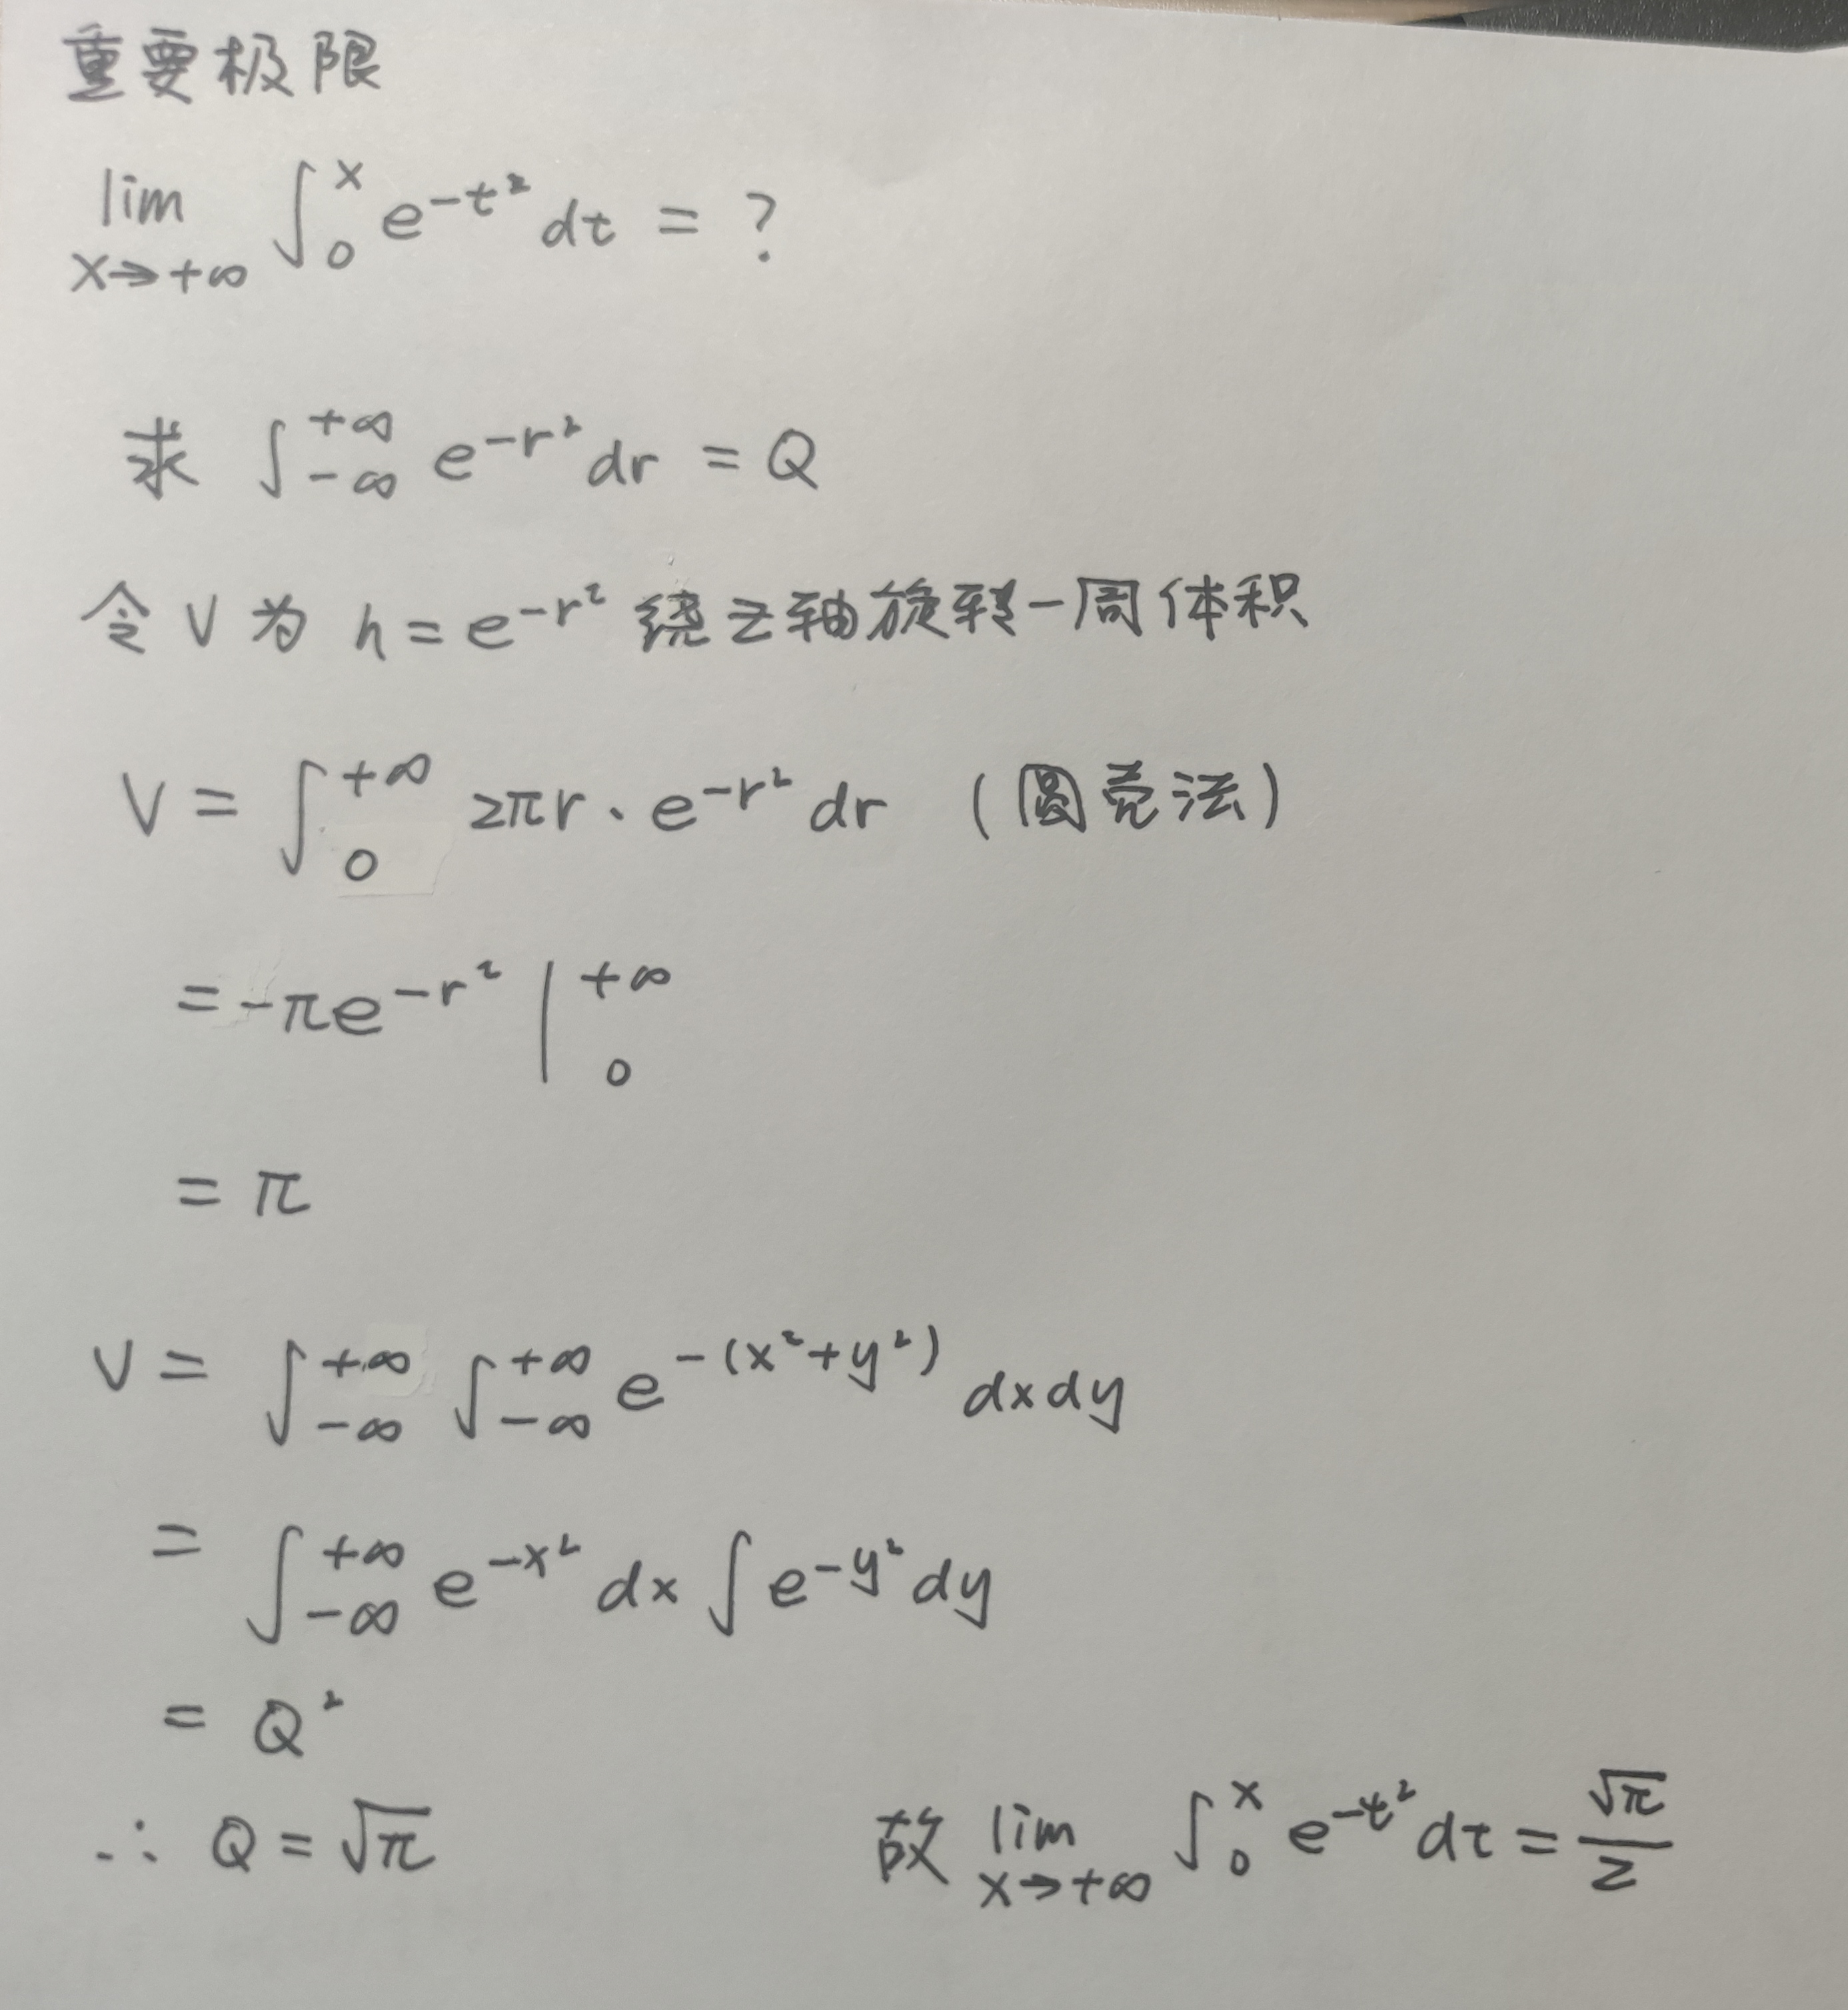 重要极限
lim_{x→+∞} ∫_0^x e^{-t²} dt = ?
求 ∫_{-∞}^{+∞} e^{-r²} dr = Q
令 V 为 h = e^{-r²} 绕z轴旋转一周体积
V = ∫_0^{+∞} 2πr · e^{-r²} dr (圆壳法)
= -πe^{-r²} |_0^{+∞}
= π
V = ∫_{-∞}^{+∞} ∫_{-∞}^{+∞} e^{-(x²+y²)} dxdy
= ∫_{-∞}^{+∞} e^{-x²} dx ∫ e^{-y²} dy
= Q²
∴ Q = √π
故 lim_{x→+∞} ∫_0^x e^{-t²} dt = √π/2